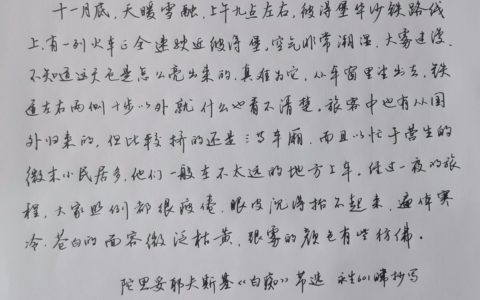 十一月底，天暖雪融，上午九点左右，彼得堡华沙铁路线
上，有一列火车正全速驶近彼得堡，空气非常潮湿，大雾迷漫，
不知道这天色是怎么亮出来的，真难为它，从车窗里望出去，铁
道左右两侧十步以外就什么也看不清楚。旅客中也有从国
外归来的，但比较挤的还是三等车厢，而且以忙于营生的
微末小民居多，他们一般在不太远的地方上车。经过一夜的旅
程，大家照例都很疲倦，眼皮沉得抬不起来，遍体寒
冷，苍白的面容微泛枯黄，跟雾的颜色有些仿佛。
陀思妥耶夫斯基《白痴》节选 永生601晞抄写